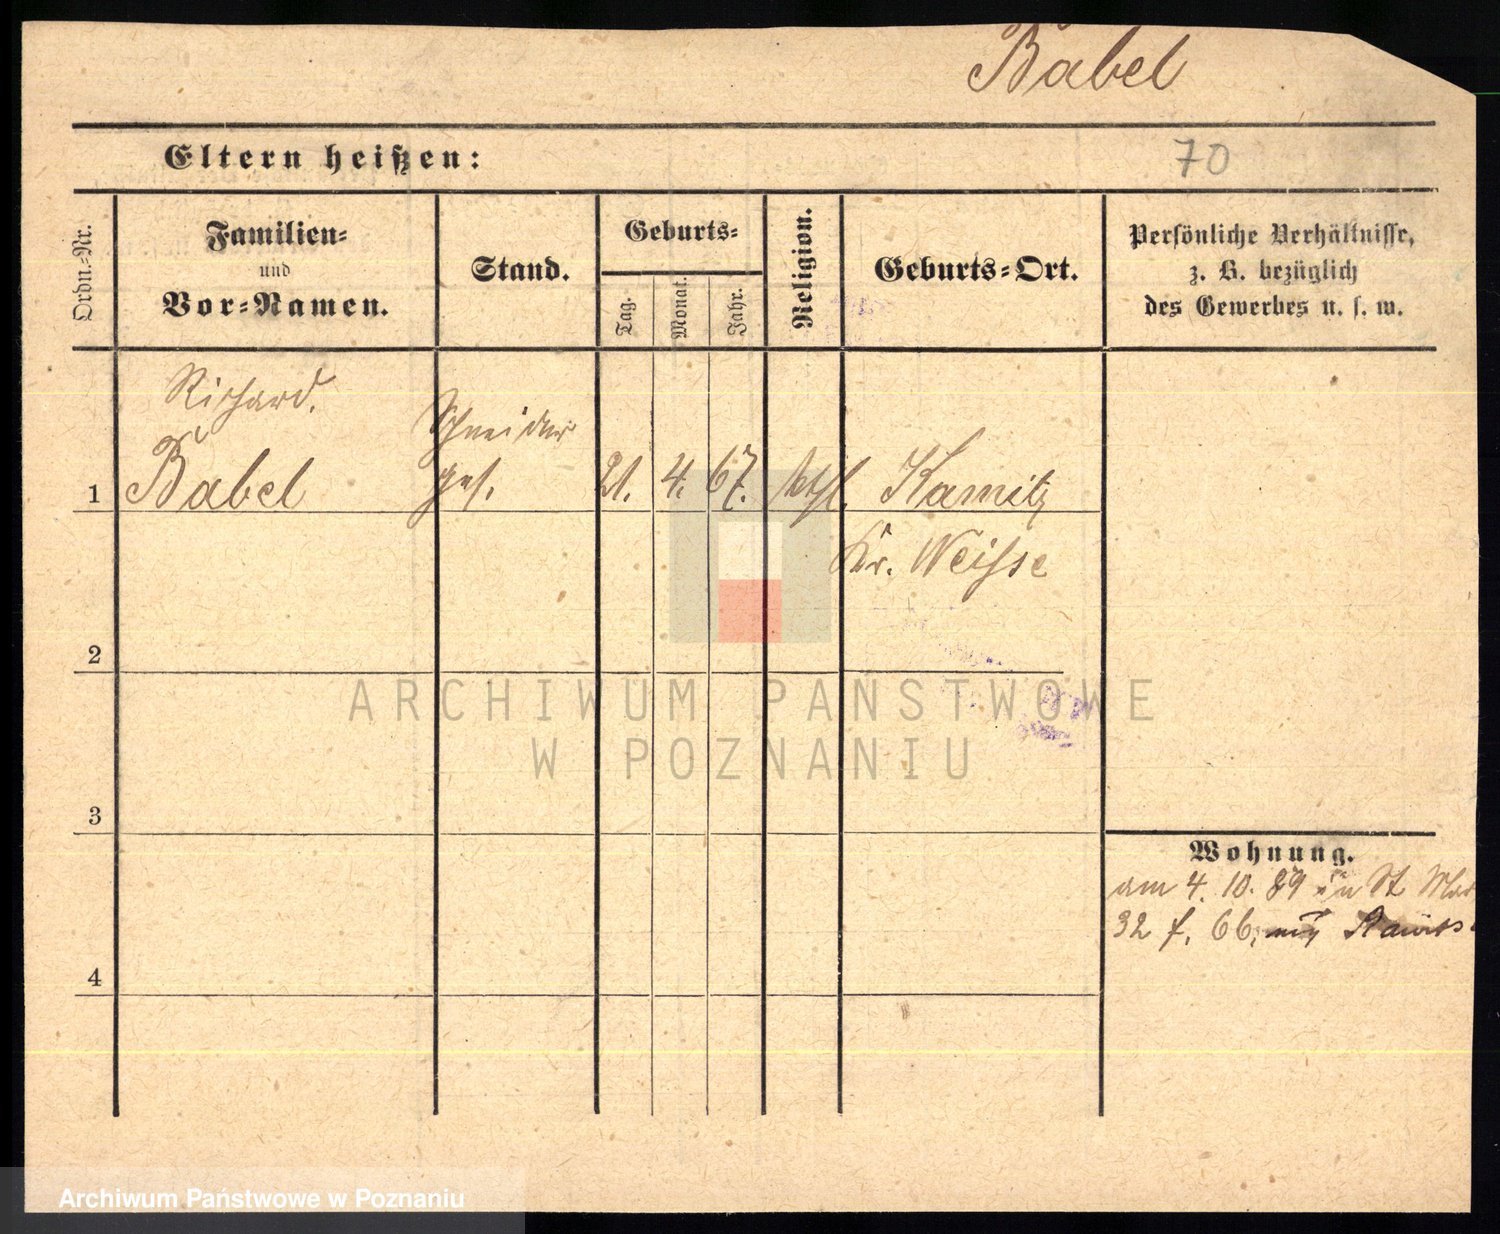 Babel
Eltern heißen:
70
Ordn.-Nr.
Familien-
und
Vor-Namen.
Stand.
Geburts-
Tag.
Monat.
Jahr.
Religion.
Geburts-Ort.
Persönliche Verhältnisse,
z. B. bezüglich
des Gewerbes u. s. w.
Richard.
Schneider
1 Babel ges. 21. 4. 67. kthl. Kamitz
Kr. Neisse
2
ARCHIWUM PAŃSTWOWE
W POZNANIU
3
Wohnung.
am 4. 10. 89 in St
32 f. 66,
4
Archiwum Państwowe w Poznaniu